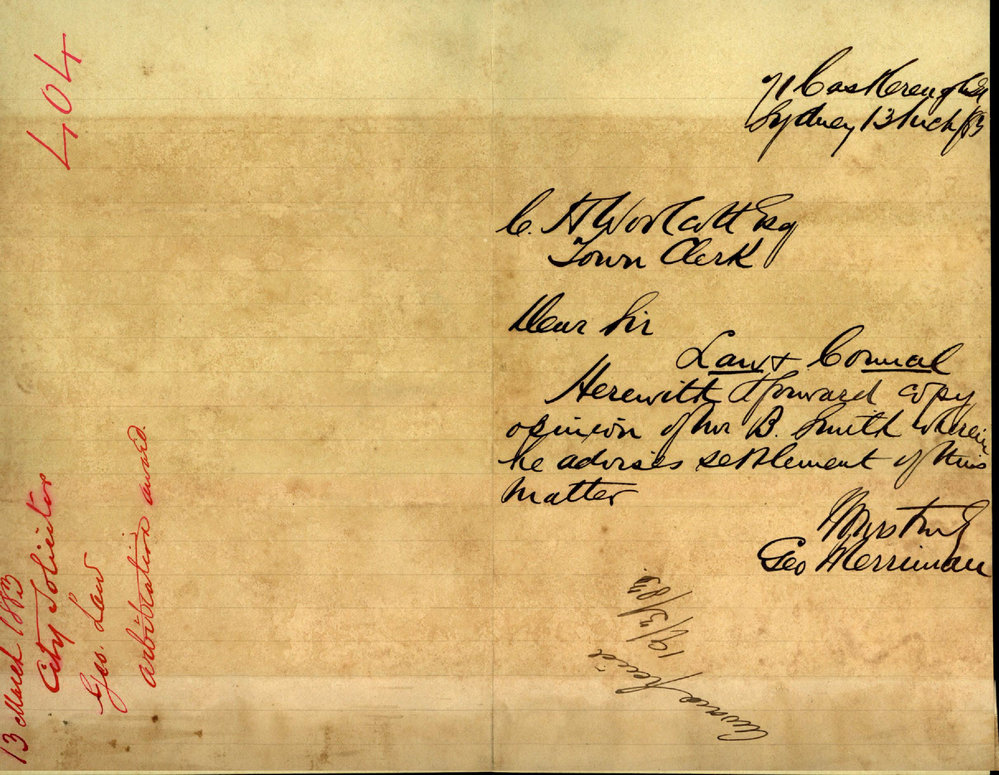 404
13 March 1883
City Solicitor
Geo. Law
arbitration award.
71 Castlereagh St
Sydney 13 Mch/83
C. H Woolcott Esq
Town Clerk
Dear Sir
Law & Connal
Herewith I forward copy
opinion of Mr B. Smith wherein
he advises settlement of this
matter
Yours truly
Geo Merriman
Award Paid
19/3/83.